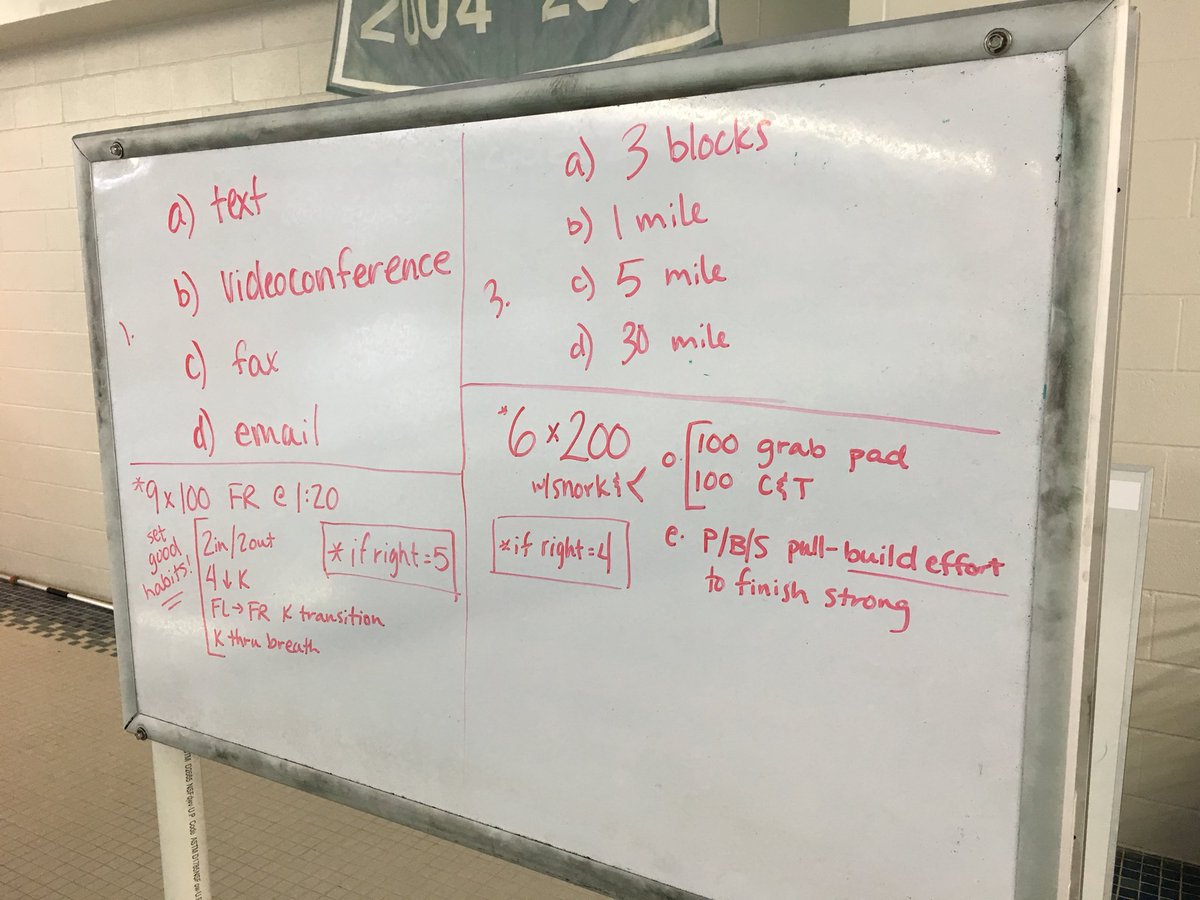 2004
1.
a) text
b) videoconference
c) fax
d) email
3.
a) 3 blocks
b) 1 mile
c) 5 mile
d) 30 mile
*9x100 FR @ 1:20
set good habits!
2in/2out
4↓K
FL→FR K transition
K thru breath
*if right=5
*6x200
w/snork&<
*if right=4
o. 100 grab pad
100 C&T
e. P/B/S pull-build effort
to finish strong